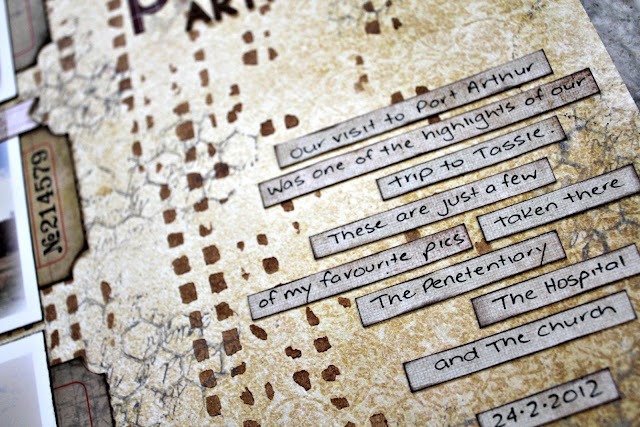 ART
№214579
Our visit to Port Arthur
was one of the highlights of our
trip to Tassie.
These are just a few
of my favourite pics
taken there
The Penetentiary
The Hospital
and The Church
24.2.2012